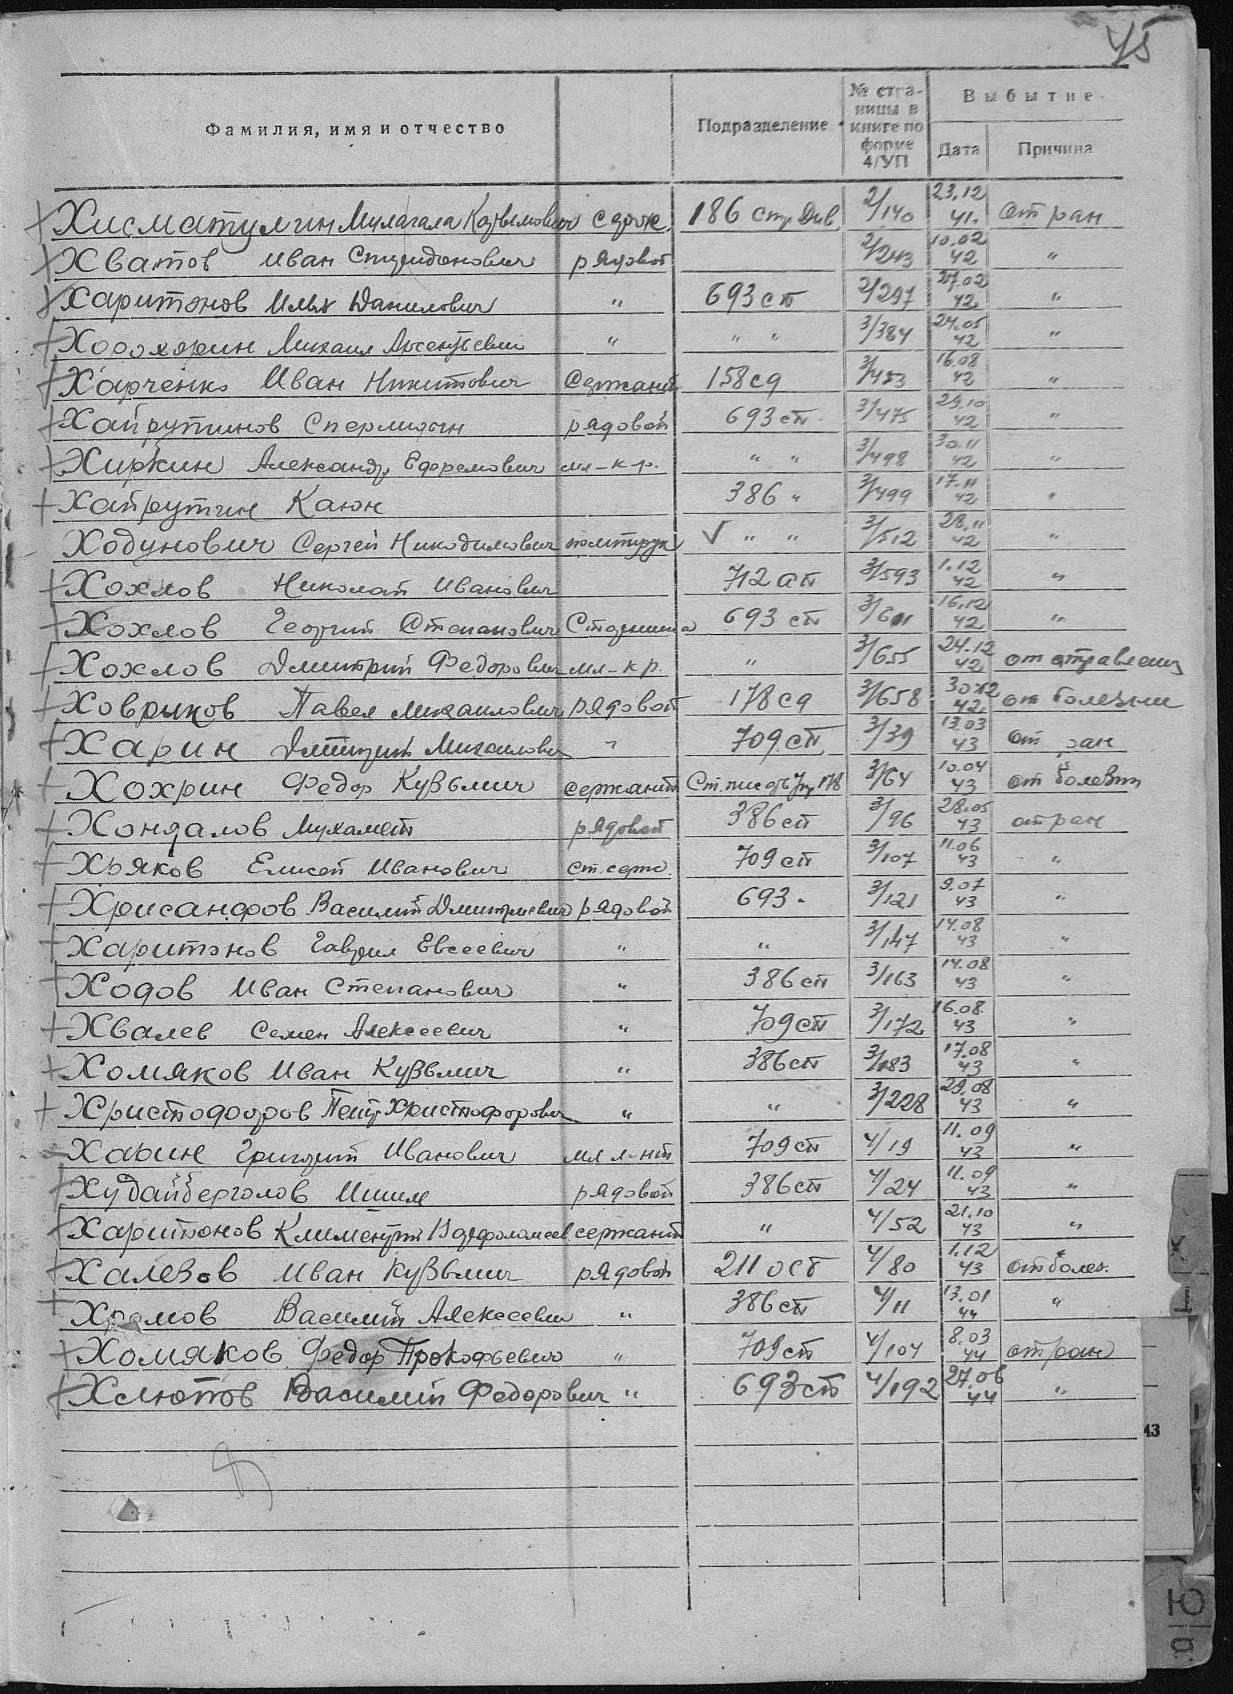 45
Фамилия, имя и отчество Подразделение № стра-ницы в книге по форме 4/УП Выбытие
Дата Причина
Хисматулин 186 стр. Див. 2/140 23.12 41. от ран
Хватов Иван Спиридонович рядовой 2/243 10.02 42 "
Харитонов Илья Данилович " 693 сп 2/297 27.02 42 "
Михаил Арсентьевич " " " 3/384 24.05 42 "
Харченко Иван Никитович Сержант 158 сд 3/453 16.08 42 "
рядовой 693 сп 3/475 29.10 42 "
Хиркин Александр Ефремович мл-к-р. " " 3/498 30.11 42 "
Хайрутин Каюн 386 " 3/499 17.11 42 "
Ходунович Сергей Никодимович политрук √ " " 3/512 28.11 42 "
Хохлов Николай Иванович 712 ап 3/593 1.12 42 "
Хохлов Георгий Степанович Старшина 693 сп 3/611 16.12 42 "
Хохлов Дмитрий Федорович мл-к-р. " 3/655 24.12 42 от отравления
Ховрычов Павел Михаилович рядовой 178 сд 3/658 30.12 42 от болезни
Харин Дмитрий Михаилович " 709 сп 3/39 13.03 43 от ран
Хохрин Федор Кузьмич сержант Ст. писарь 178 3/64 10.04 43 от болезни
Хондалов Мухамет рядовой 386 сп 3/96 28.05 43 от ран
Хряков Елисей Иванович ст. серж. 709 сп 3/107 11.06 43 "
Хрисанфов Василий Дмитриевич рядовой 693 " 3/121 9.07 43 "
Харитонов Гаврил Евсеевич " " 3/147 14.08 43 "
Ходов Иван Степанович " 386 сп 3/163 14.08 43 "
Хвалев Семен Алексеевич " 709 сп 3/172 16.08 43 "
Хомяков Иван Кузьмич " 386 сп 3/183 17.08 43 "
Христофоров Петр Христофорович " " 3/228 29.08 43 "
Харин Григорий Иванович мл л-нт 709 сп 4/19 11.09 43 "
Худайберголов Ишим рядовой 386 сп 4/24 11.09 43 "
Харитонов Климентий Варфоломеев сержант " 4/52 21.10 43 "
Халезов Иван Кузьмич рядовой 211 осб 4/80 1.12 43 от болез.
Храмов Василий Алексеевич " 386 сп 4/11 13.01 44 "
Хомяков Федор Прокофьевич " 709 сп 4/104 8.03 44 от ран
Хлюпов Василий Федорович " 693 сп 4/192 27.06 44 "
43
Ю
Я